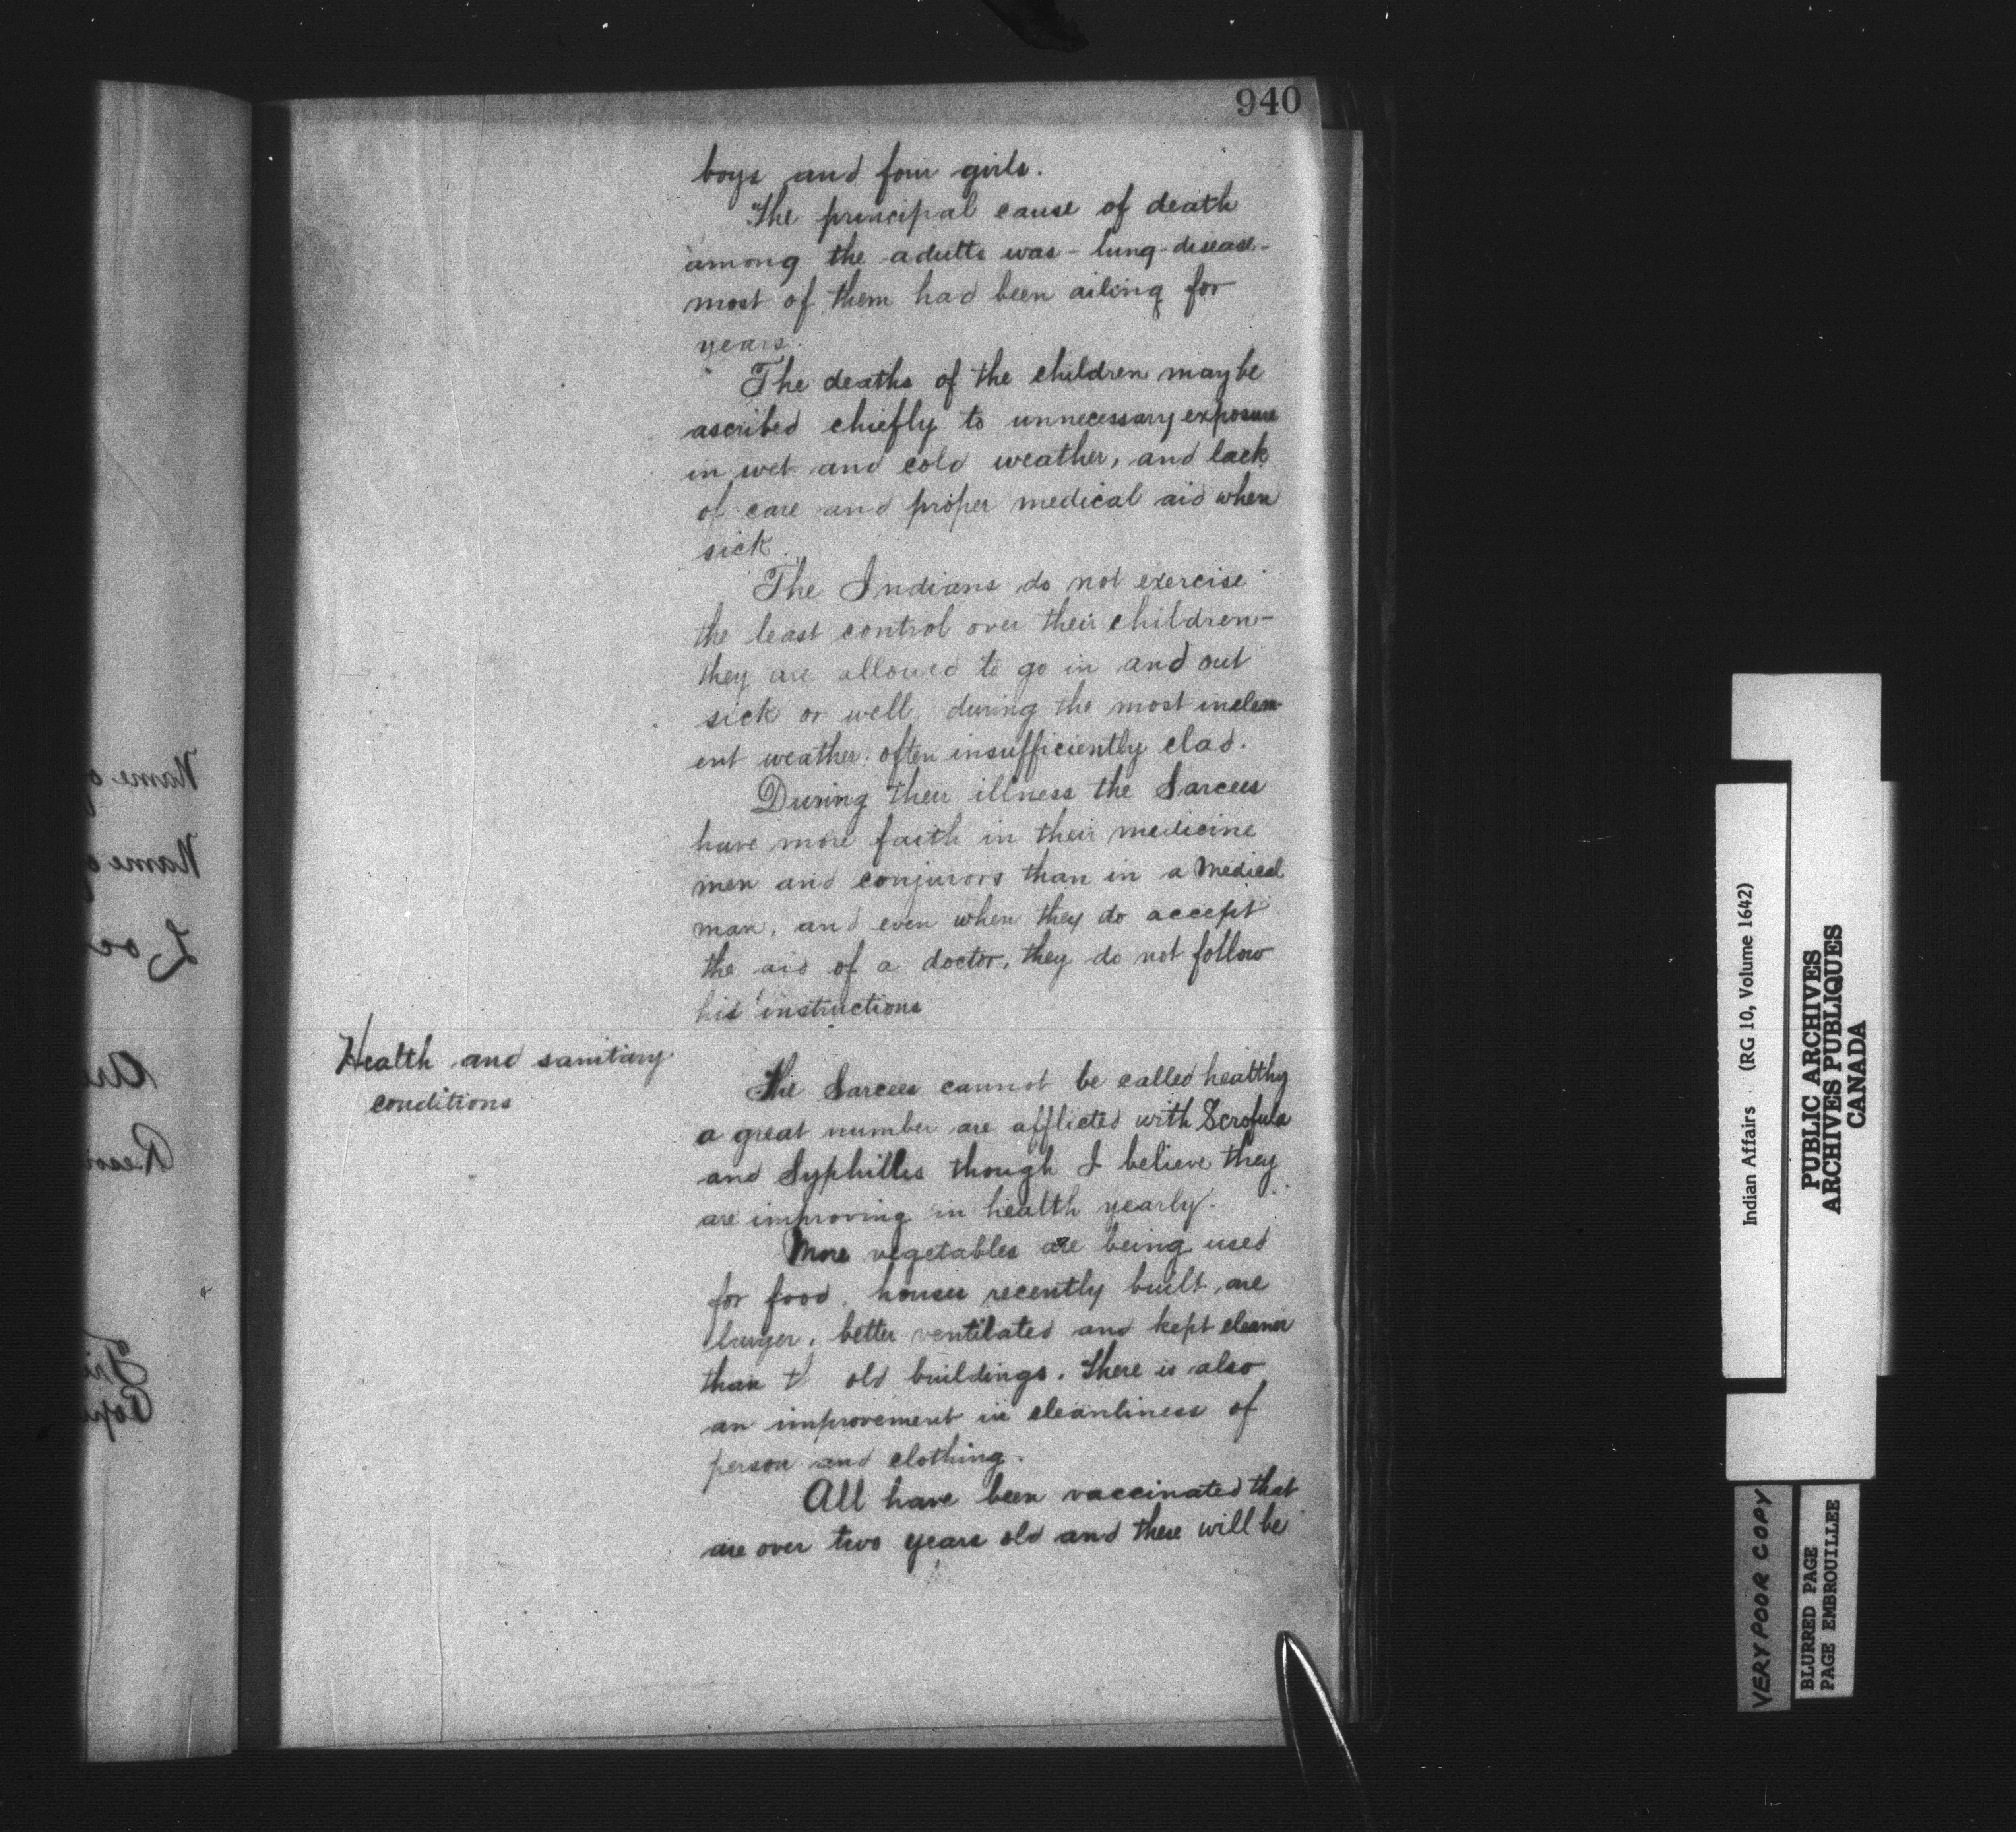 940
boys and four girls.
The principal cause of death
among the adults was - lung-disease-
most of them had been ailing for
years.
The deaths of the children may be
ascribed chiefly to unnecessary exposure
in wet and cold weather, and lack
of care and proper medical aid when
sick.
The Indians do not exercise
the least control over their children-
they are allowed to go in and out
sick or well, during the most inclem-
ent weather. often insufficiently clad.
During their illness the Sarcees
have more faith in their medicine
men and conjurors than in a Medical
man, and even when they do accept
the aid of a doctor, they do not follow
his instructions
Health and sanitary
conditions
The Sarcees cannot be called healthy
a great number are afflicted with Scrofula
and Syphilles though I believe they
are improving in health yearly.
More vegetables are being used
for food, houses recently built are
larger, better ventilated and kept cleaner
than t old buildings. There is also
an improvement in cleanliness of
person and clothing.
All have been vaccinated that
are over two years old and these will be
Name of
Name of
Indian Affairs . (RG 10, Volume 1642)
PUBLIC ARCHIVES
ARCHIVES PUBLIQUES
CANADA
VERY POOR COPY
BLURRED PAGE
PAGE EMBROUILLEE